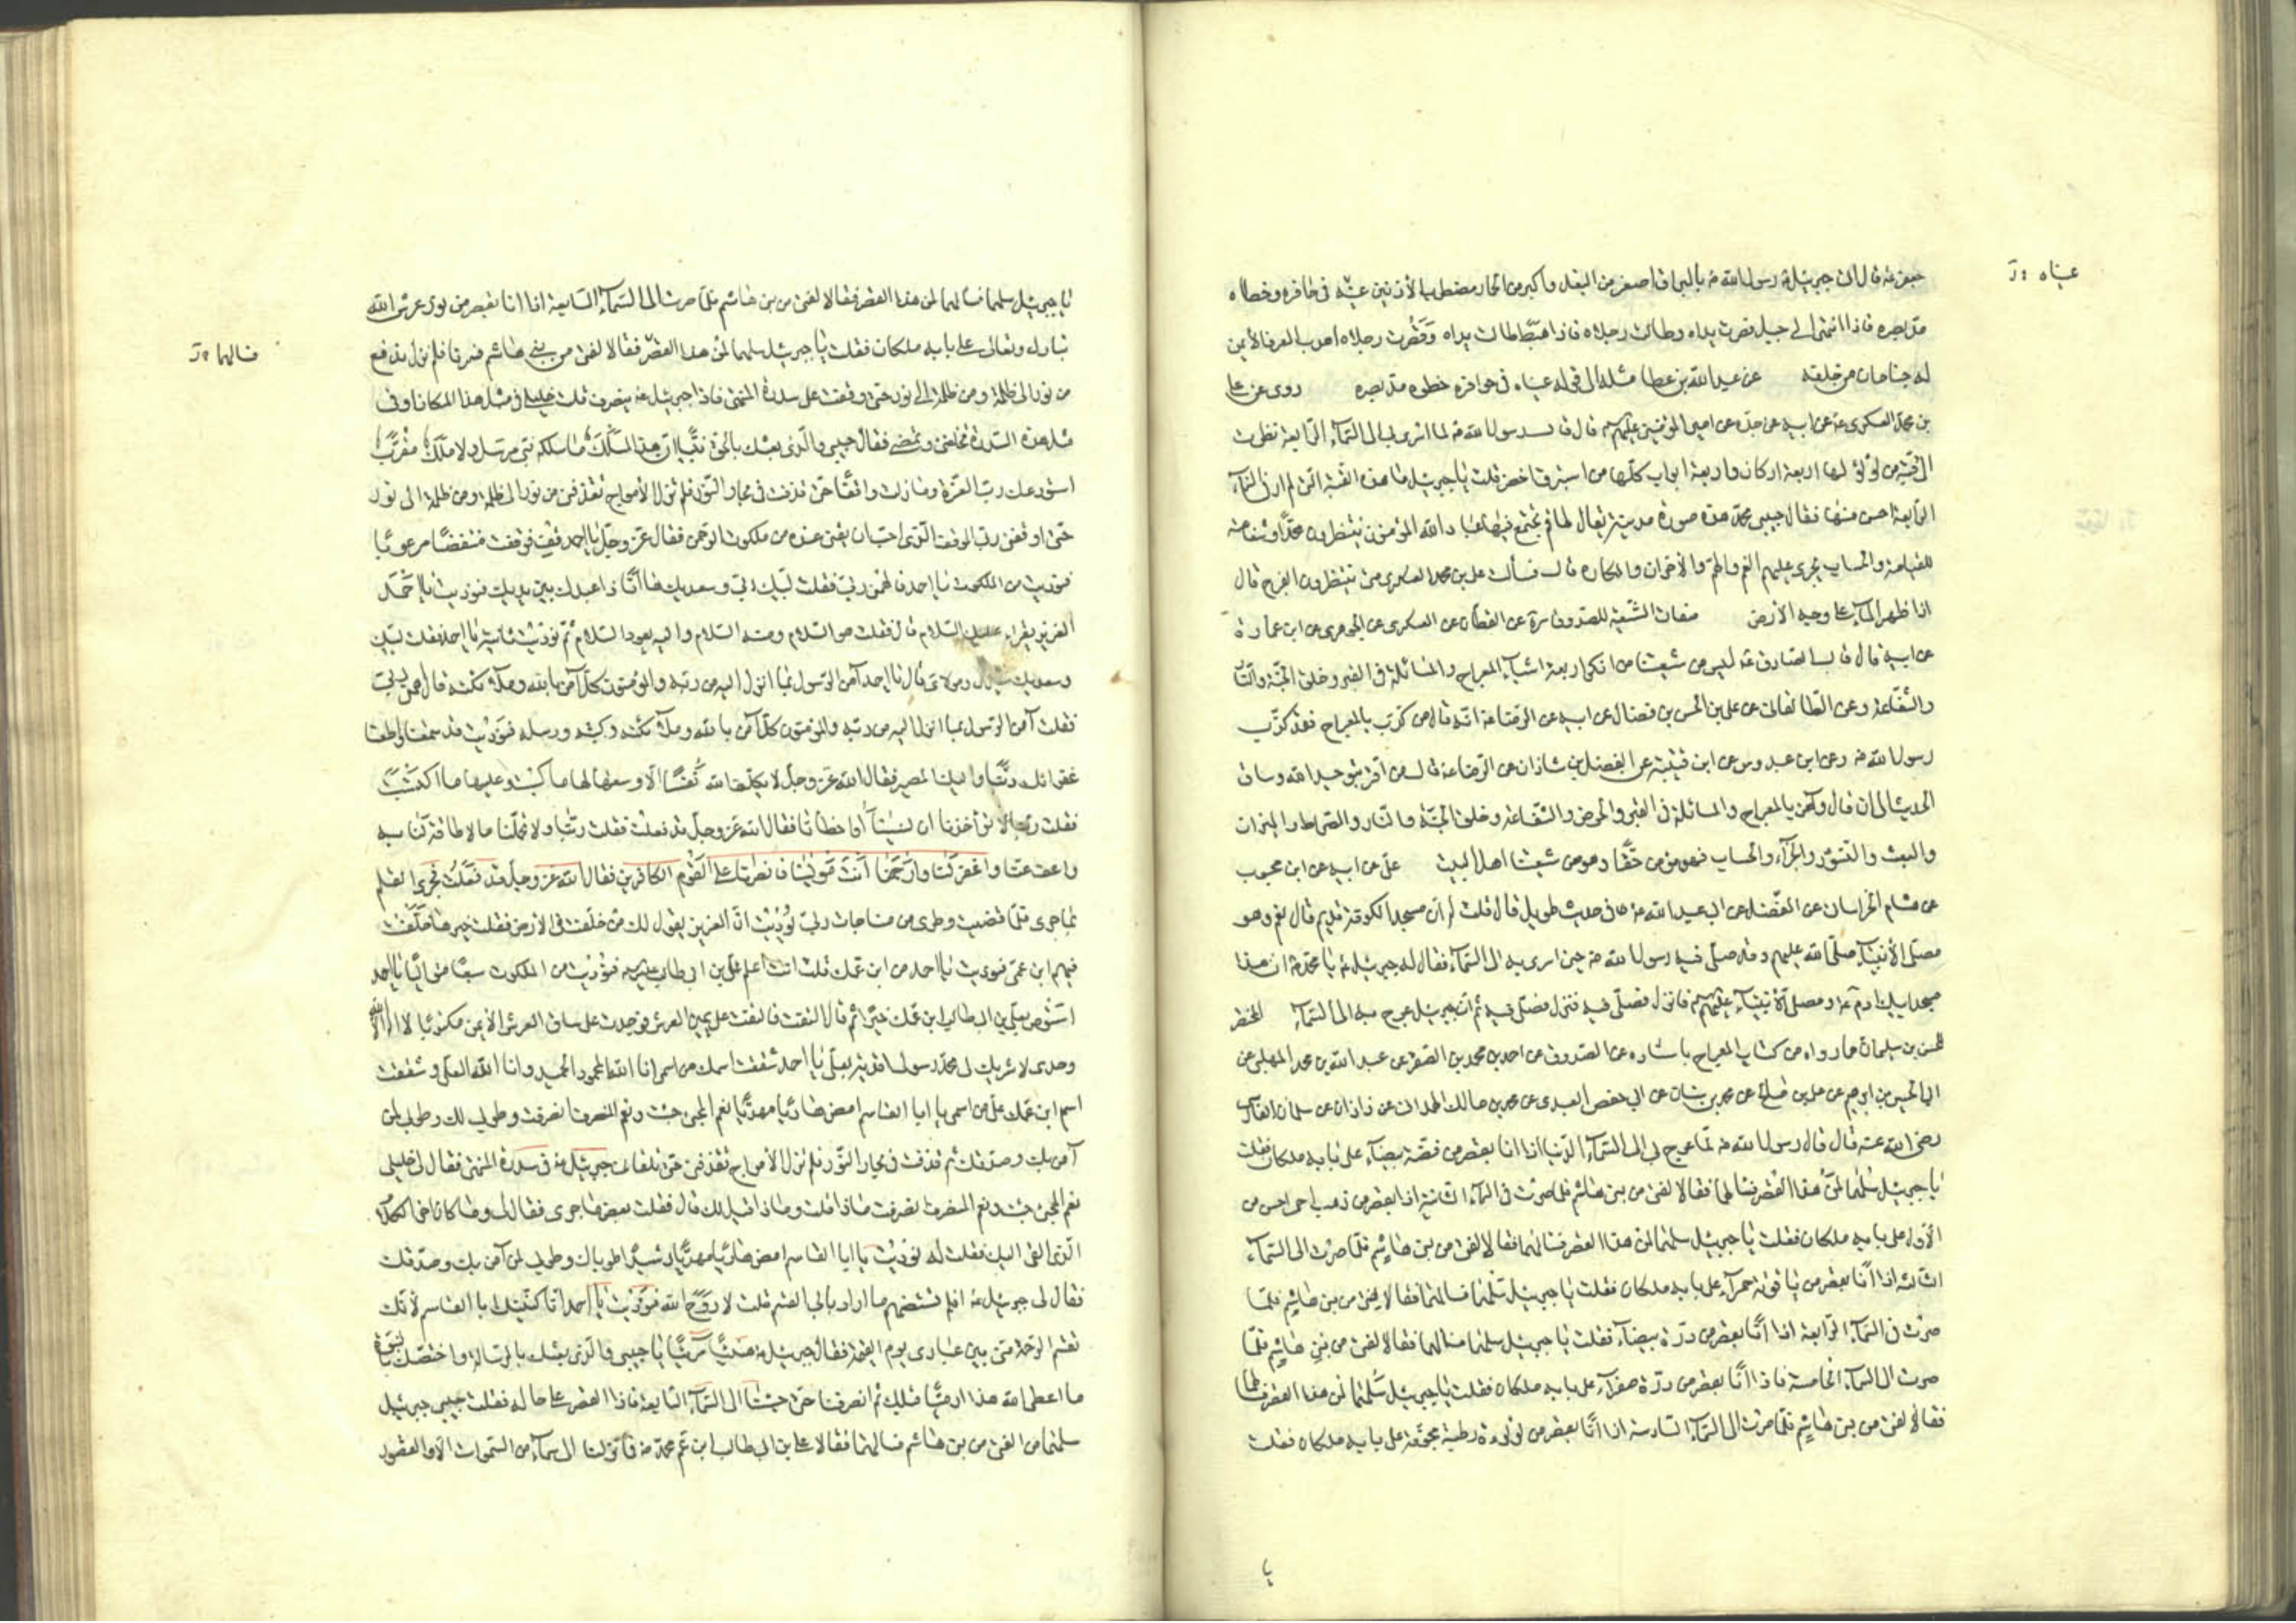 جعفر ع قال اتى جبرئيل ع رسول الله ص بالبراق اصغر من البغل واكبر من الحمار مضطرب الأذنين عينيه في حافره وخطاه
عيناه
مد بصره فاذا انتهى الى جبل قصرت يداه وطالت رجلاه فاذا هبط طالت يداه وقصرت رجلاه اهدب العرف الأيمن
له جناحان من خلفه عن عبد الله بن عطا مثله الى قوله عيناه في حوافره خطوه مد بصره روى عن علي
بن محمد العسكرى ع عن ابيه عن جده عن امير المؤمنين عليهم قال قال رسول الله ص لما اسرى بي الى السمآء الرابعة نظرت
الى قبة من لؤلؤ لها اربعة اركان واربعة ابواب كلها من استبرق اخضر قلت يا جبرئيل ما هذه القبة التي لم ار في السمآء
الرابعة احسن منها فقال حبيبى محمد هذه صورة مدينة يقال لها قم يجتمع فيها عباد الله المؤمنون ينتظرون محمدا وشفاعته
للقيامة والحساب يجرى عليهم الغم والهم والأحزان والمكاره قال فسألت علي بن محمد العسكرى متى ينتظرون الفرج قال
اذا ظهر المآء على وجه الأرض صفات الشيعة للصدوق عن القطان عن السكرى عن الجوهرى عن ابن عمارة
عن ابيه قال قال الصادق ع ليس من شيعتنا من انكر اربعة اشيآء المعراج والمسائلة في القبر وخلق الجنة والنار
والشفاعة وعن الطالقاني عن علي بن الحسن بن فضال عن ابيه عن الرضا ع انه قال من كذب بالمعراج فقد كذب
رسول الله ص وعن ابن عبدوس عن ابن قتيبة عن الفضل بن شاذان عن الرضا ع قال من اقر بتوحيد الله وساق
الحديث الى ان قال وآمن بالمعراج والمسائلة في القبر والحوض والشفاعة وخلق الجنة والنار والصراط والميزان
والبعث والنشور والجزآء والحساب فهو مؤمن حقا وهو من شيعتنا اهل البيت علي عن ابيه عن ابن محبوب
عن هشام الخراساني عن المفضل عن ابي عبد الله ع في حديث طويل قال قلت له ان مسجد الكوفة قديم قال نعم وهو
مصلى الأنبيآء صلى الله عليهم وقد صلى فيه رسول الله ص حين اسرى به الى السمآء فقال له جبرئيل ع يا محمد ان هذا
مسجد ابيك آدم ع ومصلى الأنبيآء عليهم فانزل فصلى فيه فنزل فصلى فيه ثم ان جبرئيل عرج به الى السمآء المحتضر
للحسن بن سليمان مما رواه من كتاب المعراج باسناده عن الصدوق عن احمد بن محمد بن الصقر عن عبد الله بن محمد المهلبي عن
ابي الحسين بن ابراهيم عن علي بن صالح عن محمد بن سنان عن ابي حفص العبدى عن محمد بن مالك الهمداني عن زاذان عن سلمان الفارسى
رضى الله عنه قال قال رسول الله ص لما عرج بي الى السمآء الدنيا اذا انا بقصر من فضة بيضآء على بابه ملكان فقلت
يا جبرئيل سلهما لمن هذا القصر فسألهما فقالا لفتى من بني هاشم فلما صرت في السمآء الثانية اذا بقصر من ذهب احمر احسن من
الأول على بابه ملكان فقلت يا جبرئيل سلهما لمن هذا القصر فسألهما فقالا لفتى من بني هاشم فلما صرت الى السمآء
الثالثة اذا انا بقصر من ياقوتة حمرآء على بابه ملكان فقلت يا جبرئيل سلهما فسألهما فقالا لفتى من بني هاشم فلما
صرت في السمآء الرابعة اذا انا بقصر من درة بيضآء فقلت يا جبرئيل سلهما فسألهما فقالا لفتى من بني هاشم فلما
صرت الى السمآء الخامسة فاذا انا بقصر من درة صفرآء على بابه ملكان فقلت يا جبرئيل سلهما لمن هذا القصر فسألهما
فقالا لفتى من بني هاشم فلما صرت الى السمآء السادسة اذا انا بقصر من لؤلؤة رطبة مجوفة على بابه ملكان فقلت
يا
يا جبرئيل سلهما فسألهما لمن هذا القصر فقالا لفتى من بني هاشم فلما صرت الى السمآء السابعة اذا انا بقصر من نور عرش الله
تبارك وتعالى على بابه ملكان فقلت يا جبرئيل سلهما لمن هذا القصر فقالا لفتى من بني هاشم فسرنا فلم نزل ندفع
فسالهما
من نور الى ظلمة ومن ظلمة الى نور حتى وقفت على سدرة المنتهى فاذا جبرئيل ع ينصرف قلت خليلي في مثل هذا المكان او في
مثل هذه السدرة تخلفني وتمضى فقال حبيبى والذى بعثك بالحق نبيا ان هذا المسلك ما سلكه نبي مرسل ولا ملك مقرب
استودعك رب العزة وما زلت واقفا حتى قذفت في بحار النور فلم تزل الأمواج تقذفني من نور الى ظلمة ومن ظلمة الى نور
حتى اوقفني ربي الموقف الذى احب ان يقفني عنده من ملكوت الرحمن فقال عز وجل يا احمد قف فوقفت منتفضا مرعوبا
فنوديت من الملكوت يا احمد فالهمني ربي فقلت لبيك ربي وسعديك ها انا ذا عبدك بين يديك فنوديت يا احمد
العزيز يقرء عليك السلام قال فقلت هو السلام ومنه السلام واليه يعود السلام ثم نوديت ثانية يا احمد فقلت لبيك
وسعديك سيدى ومولاى قال يا احمد آمن الرسول بما انزل اليه من ربه والمؤمنون كل آمن بالله وملآئكته قال فالهمني ربي
فقلت آمن الرسول بما انزل اليه من ربه والمؤمنون كل آمن بالله وملآئكته وكتبه ورسله فنوديت قد سمعنا واطعنا
غفرانك ربنا واليك المصير فقال الله عز وجل لا يكلف الله نفسا الا وسعها لها ما كسبت وعليها ما اكتسبت
فقلت ربنا لا تؤاخذنا ان نسينا او اخطأنا فقال الله عز وجل قد فعلت فقلت ربنا ولا تحملنا ما لا طاقة لنا به
واعف عنا واغفر لنا وارحمنا انت مولينا فانصرنا على القوم الكافرين فقال الله عز وجل قد فعلت فجرى القلم
بما جرى فلما قضيت وطرى من مناجات ربي نوديت ان العزيز يقول لك من خلفت في الأرض فقلت خيرها خلفت
فيهم ابن عمي فنوديت يا احمد من ابن عمك قلت انت اعلم علي بن ابي طالب فنوديت من الملكوت سبعا متواليا يا احمد
استوص بعلي بن ابي طالب ابن عمك خيرا ثم قال التفت فالتفت عن يمين العرش فوجدت على ساق العرش الأيمن مكتوبا لا اله الا الله
وحدى لا شريك لي محمد رسولي ايدته بعلي يا احمد شققت اسمك من اسمي انا الله المحمود الحميد وانا الله العلي وشققت
اسم ابن عمك علي من اسمي يا ابا القاسم امض هاديا مهديا نعم المجئ جئت ونعم المنصرف انصرفت وطوبى لك وطوبى لمن
آمن بك وصدقك ثم قذفت في بحار النور فلم تزل الأمواج تقذفني حتى تلقاني جبرئيل ع في سدرة المنتهى فقال لي خليلي
نعم المجئ جئت ونعم المنصرف انصرفت ماذا قلت وماذا قيل لك قال فقلت بعض ما جرى فقال لي وما كان اخر الكلام
الذى القى اليك فقلت له نوديت يا ابا القاسم امض هاديا مهديا رشيدا طوباك وطوبى لمن آمن بك وصدقك
فقال لي جبرئيل ع افلم تستفهم ما اراد بابي القسم قلت لا يا روح الله فنوديت يا احمد انما كنيتك ابا القاسم لأنك
تقسم الرحمة مني بين عبادى يوم القيمة فقال جبرئيل هنيئا مريئا يا حبيبى والذى بعثك بالرسالة واختصك بالنبوة
ما اعطى الله هذا ادميا قبلك ثم انصرفنا حتى جئنا الى السمآء السابعة فاذا القصر على حاله فقلت حبيبى جبرئيل
سلهما من الفتى من بني هاشم فسألهما فقالا علي بن ابي طالب ابن عم محمد ص فما نزلنا الى سمآء من السموات الا والقصور